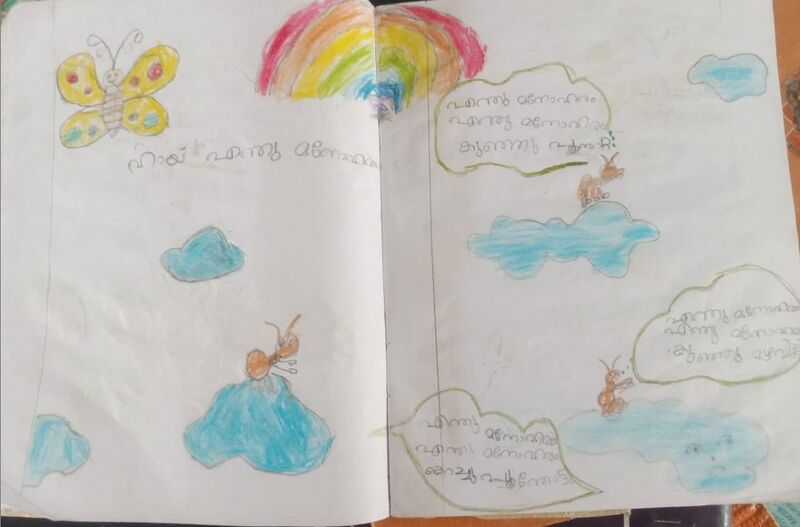 ഹായ് എന്തു മനോഹരം
എന്തു മനോഹരം
എന്തു മനോഹരം
കുഞ്ഞു പൂമ്പാറ്റ
എന്തു മനോഹരം
എന്തു മനോഹരം
കുഞ്ഞു മഴവില്ല്
എന്തു മനോഹരം
എന്തു മനോഹരം
കൊച്ചു പൂന്തോട്ടം